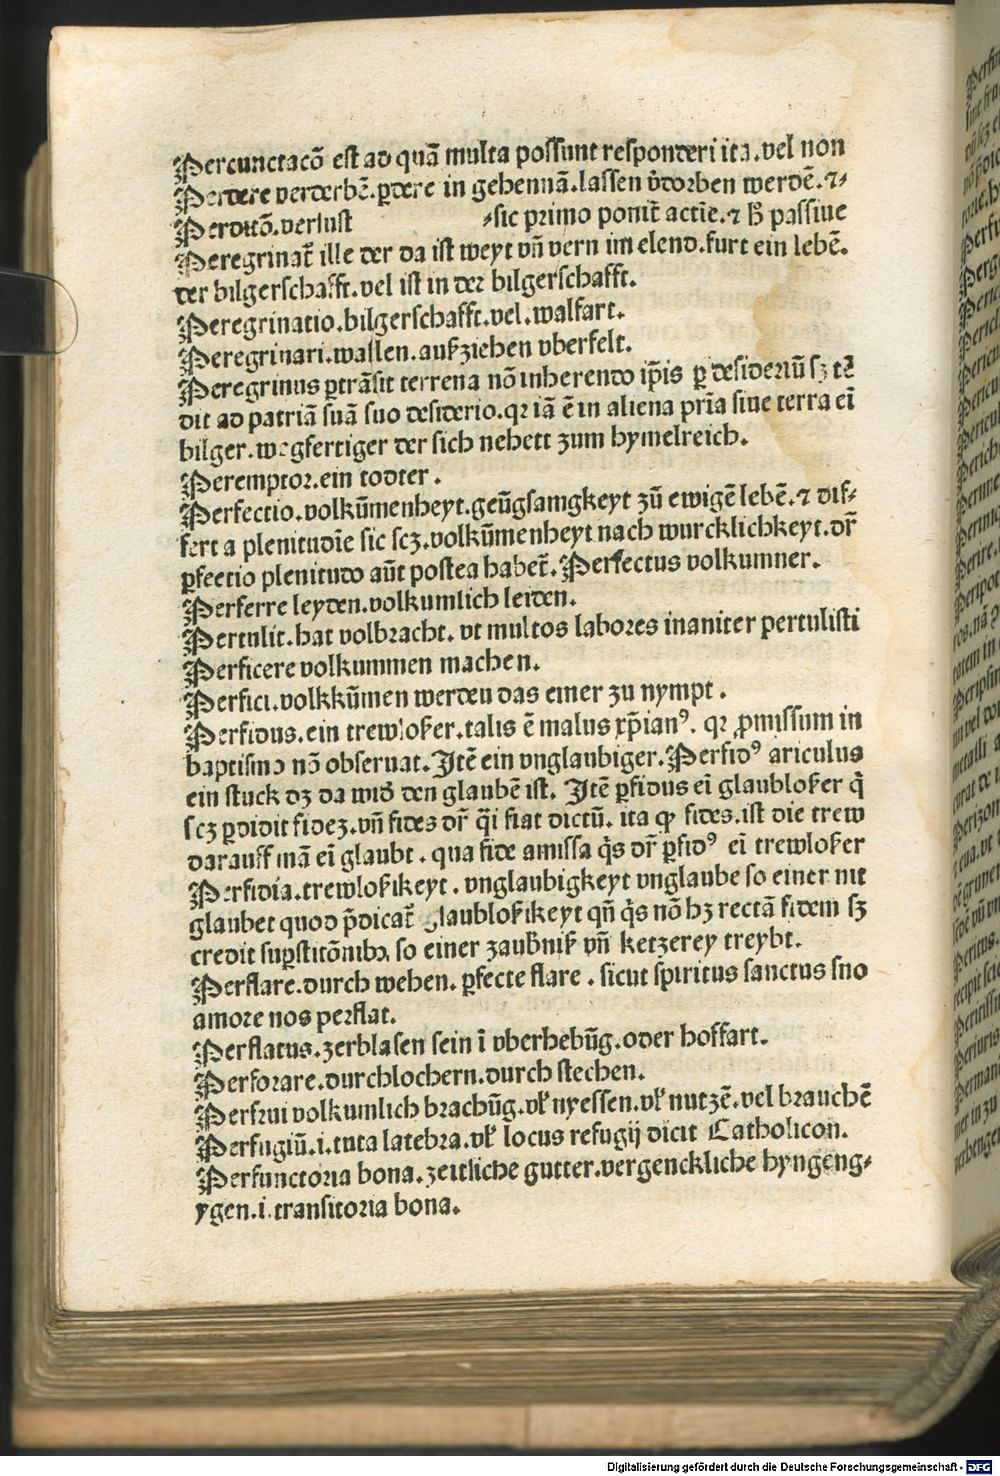 Percunctacō est ad quā multa possunt responderi ita.vel non
Perdere verderbē.ꝑdere in gehennā.lassen v̄dorben werdē.⁊⸗
Perditō.verlust ⸗sic primo ponit̄ actīe.⁊ hͦ passiue
Peregrinat̄ ille der da ist weyt vn̄ vern im elend.furt ein lebē.
der bilgerschafft.vel ist in der bilgerschafft.
Peregrinatio.bilgerschafft.vel.walfart.
Peregrinari.wallen.außziehen vberfelt.
Peregrinus ꝑtrāsit terrena nō inherendo ip̄is ꝑ desideriū sꝫ tē
dit ad patriā suā suo desiderio.qꝛ iā ē in aliena pr̄ia siue terra ei̅
bilger.wegfertiger der sich nehett zum hymelreich.
Peremptor.ein todter.
Perfectio.volkūmenheyt.geūgsamgkeyt zū ewigē lebē.⁊ dif⸗
fert a plenitudīe sic scꝫ.volkūmenheyt nach wurcklichkeyt.dr̄
ꝑfectio plenitudo aūt postea habet̄.Perfectus volkumner.
Perferre leyden.volkumlich leiden.
Pertulit.hat volbracht.vt multos labores inaniter pertulisti
Perficere volkummen machen.
Perfici.volkkūmen werdeu das einer zu nympt.
Perfidus.ein trewloßer.talis ē malus xp̄ianꝰ.qꝛ ꝓmissum in
baptismo nō obseruat.Itē ein vnglaubiger.Perfidꝰ ariculus
ein stuck dꝫ da wid̄ den glaubē ist. Itē ꝑfidus ei̅ glaubloßer q̄
scꝫ ꝑdidit fideꝫ.vn̄ fides dr̄ q̄i fiat dictū.ita ꝙ fides.ist die trew
darauff mā ei̅ glaubt.qua fide amissa q̄s dr̄ ꝑfidꝰ ei̅ trewloßer
Perfidia.trewloßikeyt.vnglaubigkeyt vnglaube so einer nit
glaubet quod p̄dicat̄ glaubloßikeyt qn̄ q̄s nō hꝫ rectā fidem sꝫ
credit suꝑstitōnibꝫ so einer zaub̄niß vn̄ ketzerey treybt.
Perflare.durch wehen.ꝑfecte flare.sicut spiritus sanctus sno
amore nos perflat.
Perflatus.zerblasen sein ī vberhebūg.oder hoffart.
Perforare.durchlochern.durch stechen.
Perfrui volkumlich brachūg.vł nyessen.vł nutzē.vel brauchē
Perfugiū.i.tuta latebra.vł locus refugij dicit Catholicon.
Perfunctoria bona.zeitliche gutter.vergenckliche hyngeng⸗
ygen.i.transitoria bona.
Digitalisierung gefördert durch die Deutsche Forschungsgemeinschaft - DFG